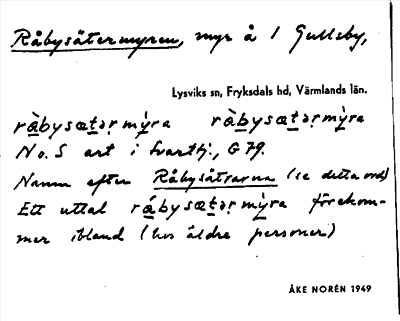 Råbysätermyren, myr å 1 Gullsby,
Lysviks sn, Fryksdals hd, Värmlands län.
ràbysætər mỳra ràbysætər mỳra
No. S art i Svarttj., G 79.
Namn efter Råbysätrarna (se detta ord)
Ett uttal rábysætər mỳra förekom-
mer ibland (hos äldre personer)
ÅKE NORÉN 1949